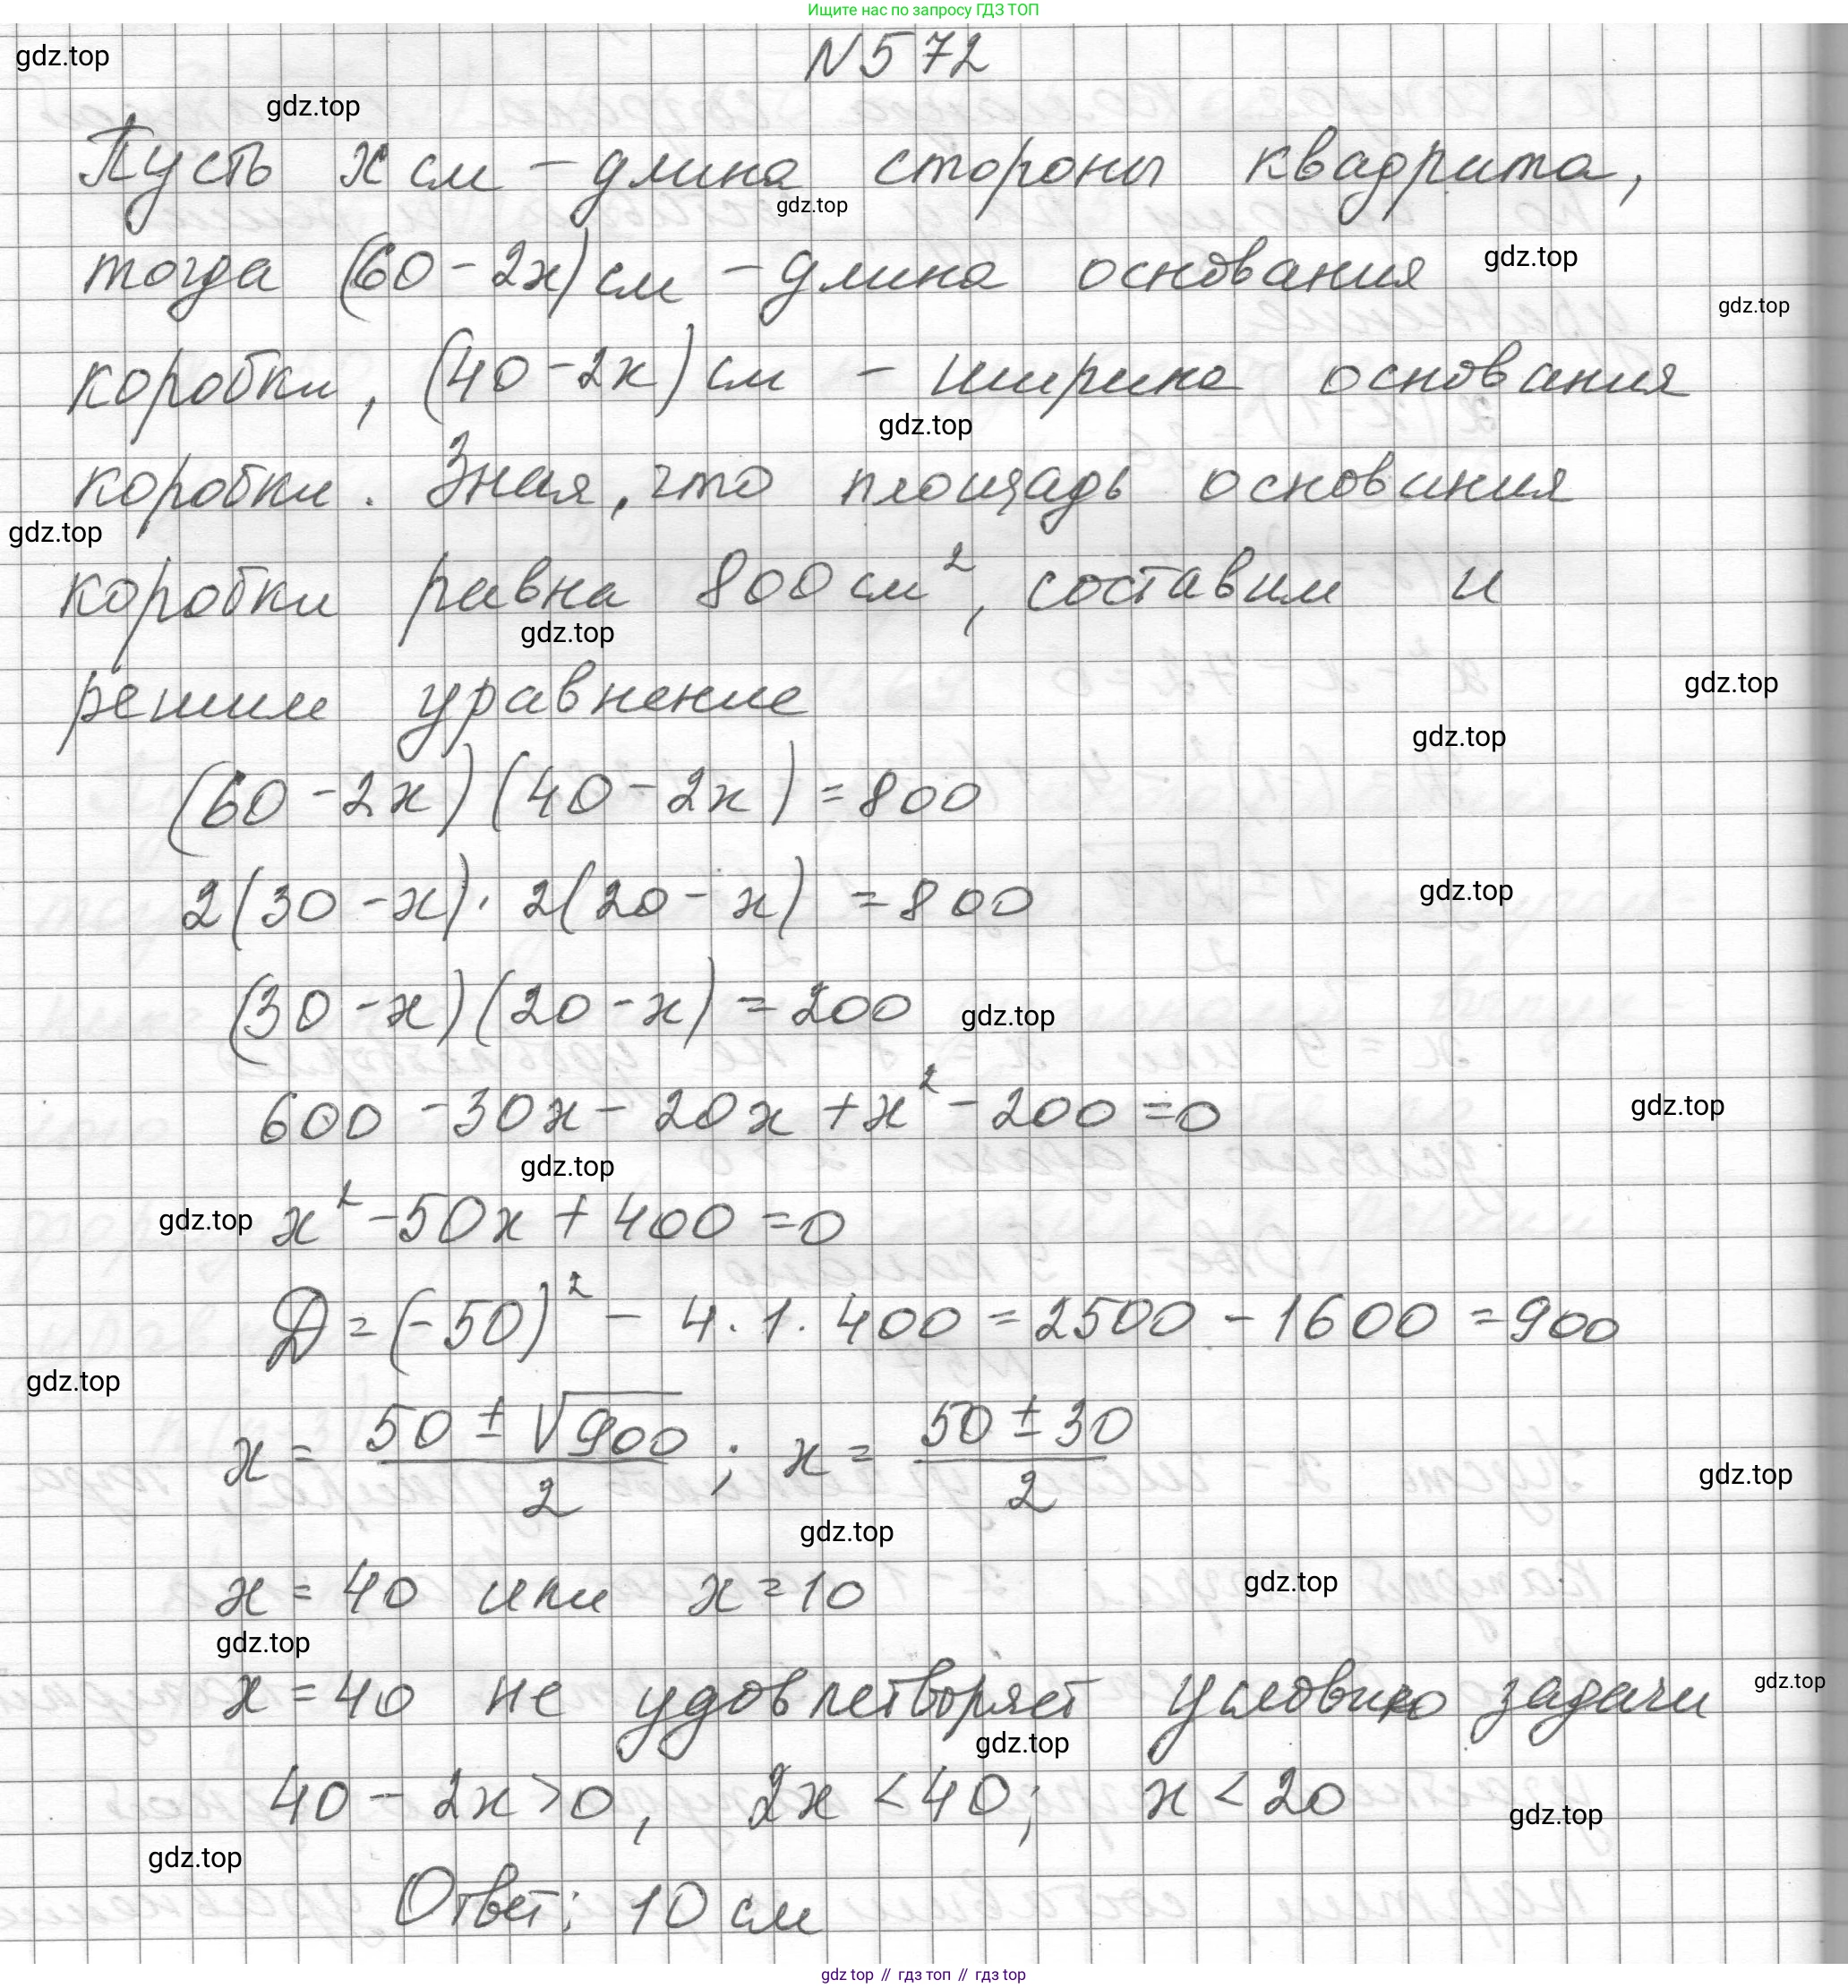 Ищите нас по запросу ГДЗ ТОП
N 572
gdz.top
gdz.top
Пусть x см – длина стороны квадрата,
gdz.top
тогда (60 - 2x) см – длина основания
gdz.top
gdz.top
коробки, (40 - 2x) см – ширина основания
gdz.top
коробки. Зная, что площадь основания
gdz.top
коробки равна 800 см², составим и
gdz.top
решим уравнение
gdz.top
gdz.top
(60 - 2x)(40 - 2x) = 800
2(30 - x) · 2(20 - x) = 800
gdz.top
(30 - x)(20 - x) = 200
gdz.top
600 - 30x - 20x + x² - 200 = 0
gdz.top
gdz.top
x² - 50x + 400 = 0
gdz.top
D = (-50)² - 4 · 1 · 400 = 2500 - 1600 = 900
gdz.top
x = (50 ± √900)/2 ; x = (50 ± 30)/2
gdz.top
gdz.top
x = 40 или x = 10
gdz.top
gdz.top
x = 40 не удовлетворяет условию задачи
gdz.top
gdz.top
40 - 2x > 0, 2x < 40; x < 20
gdz.top
gdz.top
Ответ: 10 см
gdz top // гдз топ // гдз top